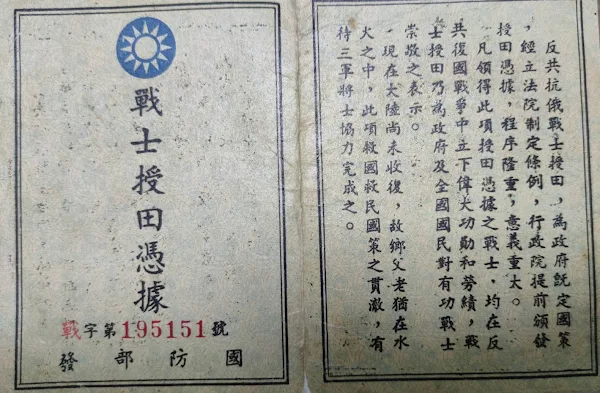 戰士授田憑據
戰字第195151號
國防部發
反共抗俄戰士授田，為政府既定國策
，經立法院制定條例，行政院提前頒發
授田憑據，程序隆重，意義重大。
凡領得此項授田憑據之戰士，均在反
共復國戰爭中立下偉大功勛和勞績，戰
士授田乃為政府及全國國民對有功戰士
崇敬之表示。
現在大陸尚未收復，故鄉父老猶在水
火之中，此項救國救民國策之貫澈，有
待三軍將士協力完成之。